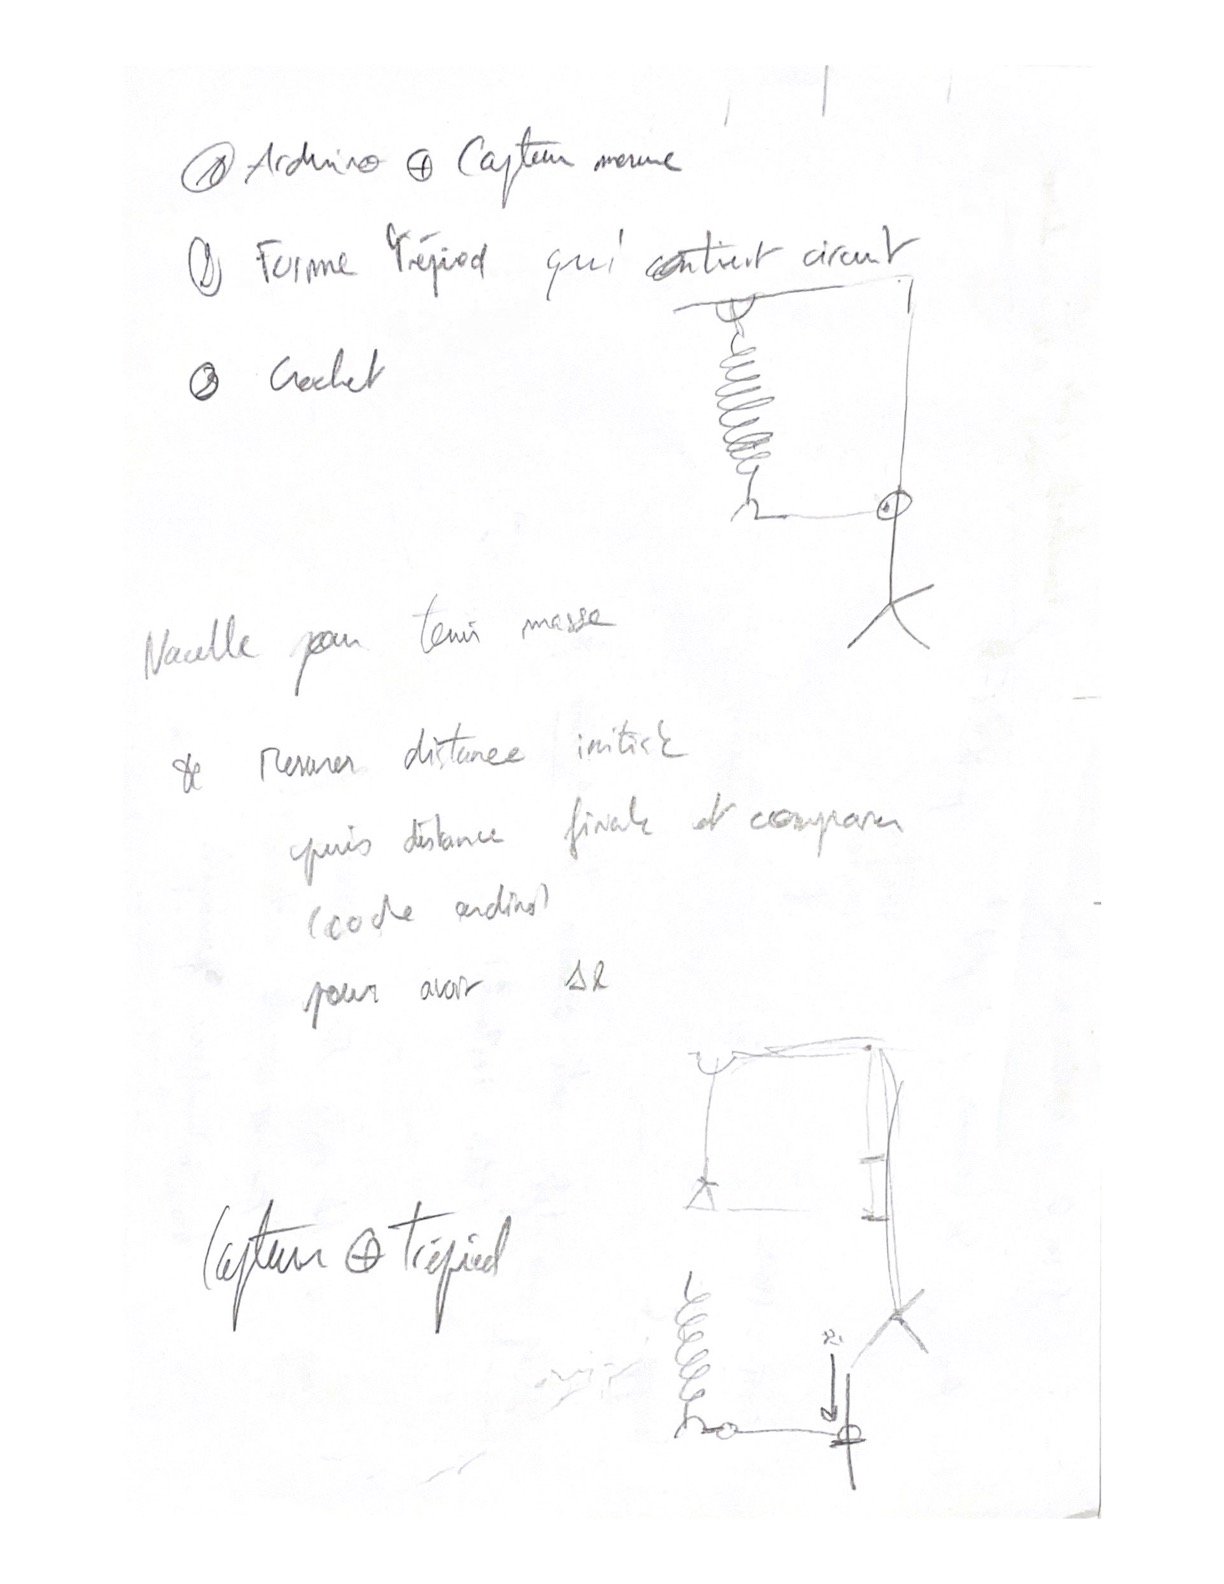 ① Arduino ⊕ Capteur mesure
② Forme Trépied qui contient circuit
③ Crochet
Nacelle pour tenir masse
* Mesurer distance initiale
puis distance finale et comparer
(code arduino)
pour avoir Δl
Capteur ⊕ trépied